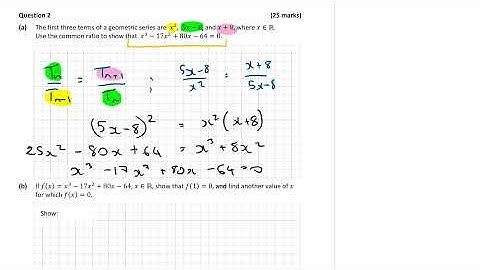 Question 2 (25 marks)
(a) The first three terms of a geometric series are x², 5x − 8, and x + 8, where x ∈ ℝ.
Use the common ratio to show that x³ − 17x² + 80x − 64 = 0.
Tn/Tn-1 = Tn+1/Tn ; 5x-8/x² = x+8/5x-8
(5x-8)² = x²(x+8)
25x² - 80x + 64 = x³ + 8x²
x³ - 17x² + 80x - 64 = 0
(b) If f(x) = x³ − 17x² + 80x − 64, x ∈ ℝ, show that f(1) = 0, and find another value of x
for which f(x) = 0.
Show: